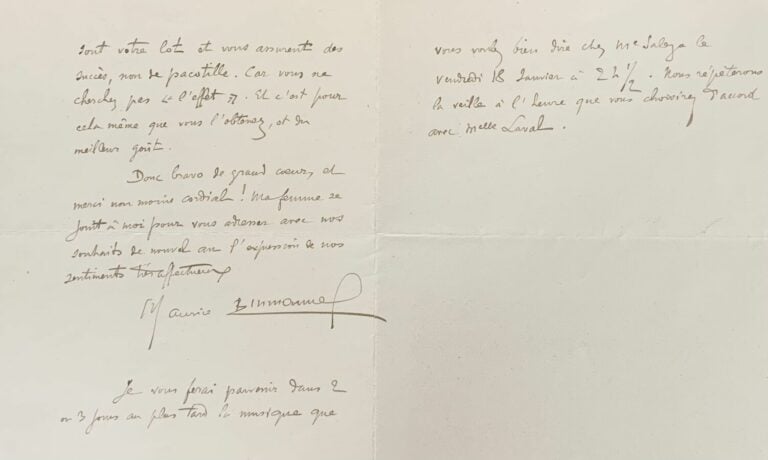 sont votre lot et vous assurent des
succès, non de pacotille. Car vous ne
cherchez pas « l'effet ». Et c'est pour
cela même que vous l'obtenez, et du
meilleur goût.
Donc bravo de grand cœur, et
merci non moins cordial ! Ma femme se
joint à moi pour vous adresser avec nos
souhaits de nouvel an l'expression de nos
sentiments très affectueux
Maurice Emmanuel
Je vous ferai parvenir dans 2
ou 3 jours au plus tard la musique que
vous voulez bien dire chez Mr
vendredi 18 Janvier à 2 h 1/2. Nous répéterons
la veille à l'heure que vous choisirez d'accord
avec Melle Laval.